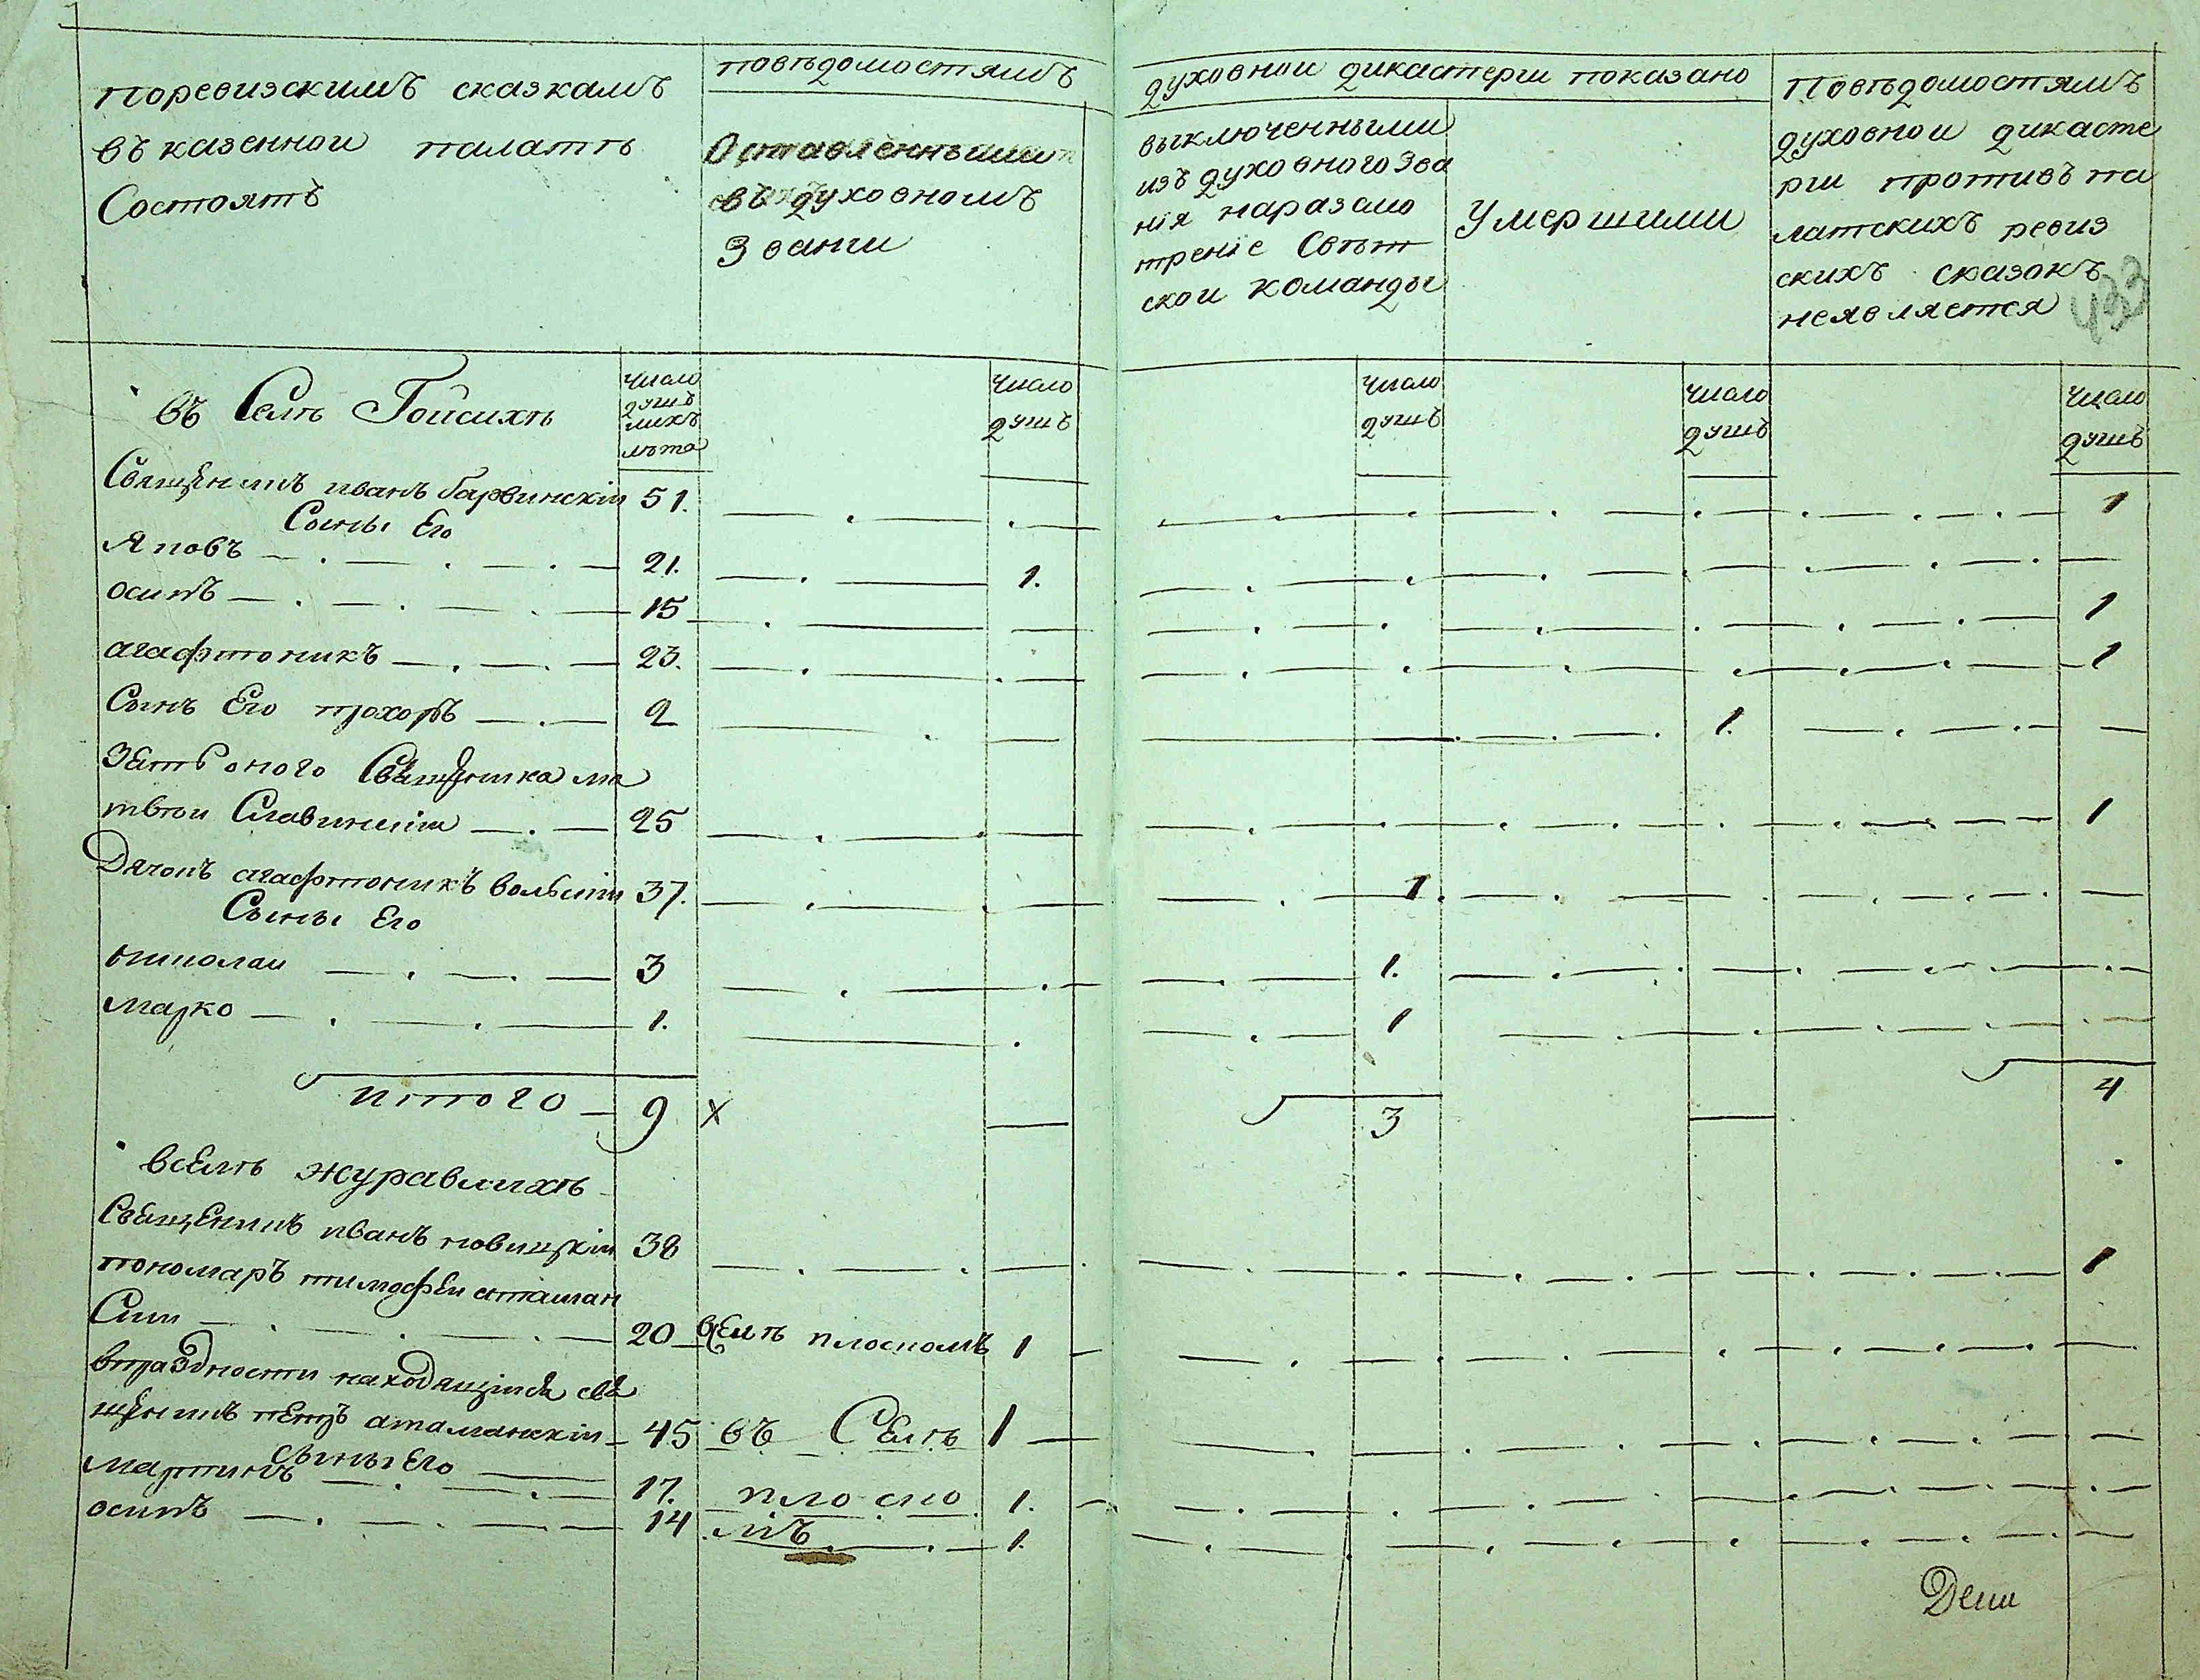 поревизскимъ сказкамъ
въ казенной палатѣ
Состоятъ
повѣдомостямъ
Оставленными
въ духовномъ
Званги
духовной дикастерги показано
выключенными
изъ духовного Зва
нія наразсмо
треніе Свѣт
ской команды
Умершими
Повѣдомостямъ
духовной дикасте
рги противъ па
латскихъ ревиз
скихъ сказокъ
неявляется
433
въ Селѣ Гойсихѣ
число
душъ
ихъ
лѣта
число
душъ
число
душъ
число
душъ
число
душъ
Священникъ иванъ барвинскій 51. 1
Сыны Его
Яковъ 21. 1.
осипъ 15 1
агафтоникъ 23. 1
Сынъ Его прохоръ 2 1.
Зять оного Священника ма
твѣй Славинскій 25 1
Дячокъ агафтоникъ вольскій 37. 1
Сыны Его
николай 3 1.
марко 1. 1
итого 9 х 3 4
вселѣ журавлихѣ
Священникъ иванъ новицкій 38 1
пономаръ тимофей атаман
Скій 20 вселѣ плоскомъ 1
впраздности находящійся свя
щенникъ петръ атаманскій 45 въ Селѣ 1
сыны Его
мартинъ 17. плоско 1.
осипъ 14 мъ 1.